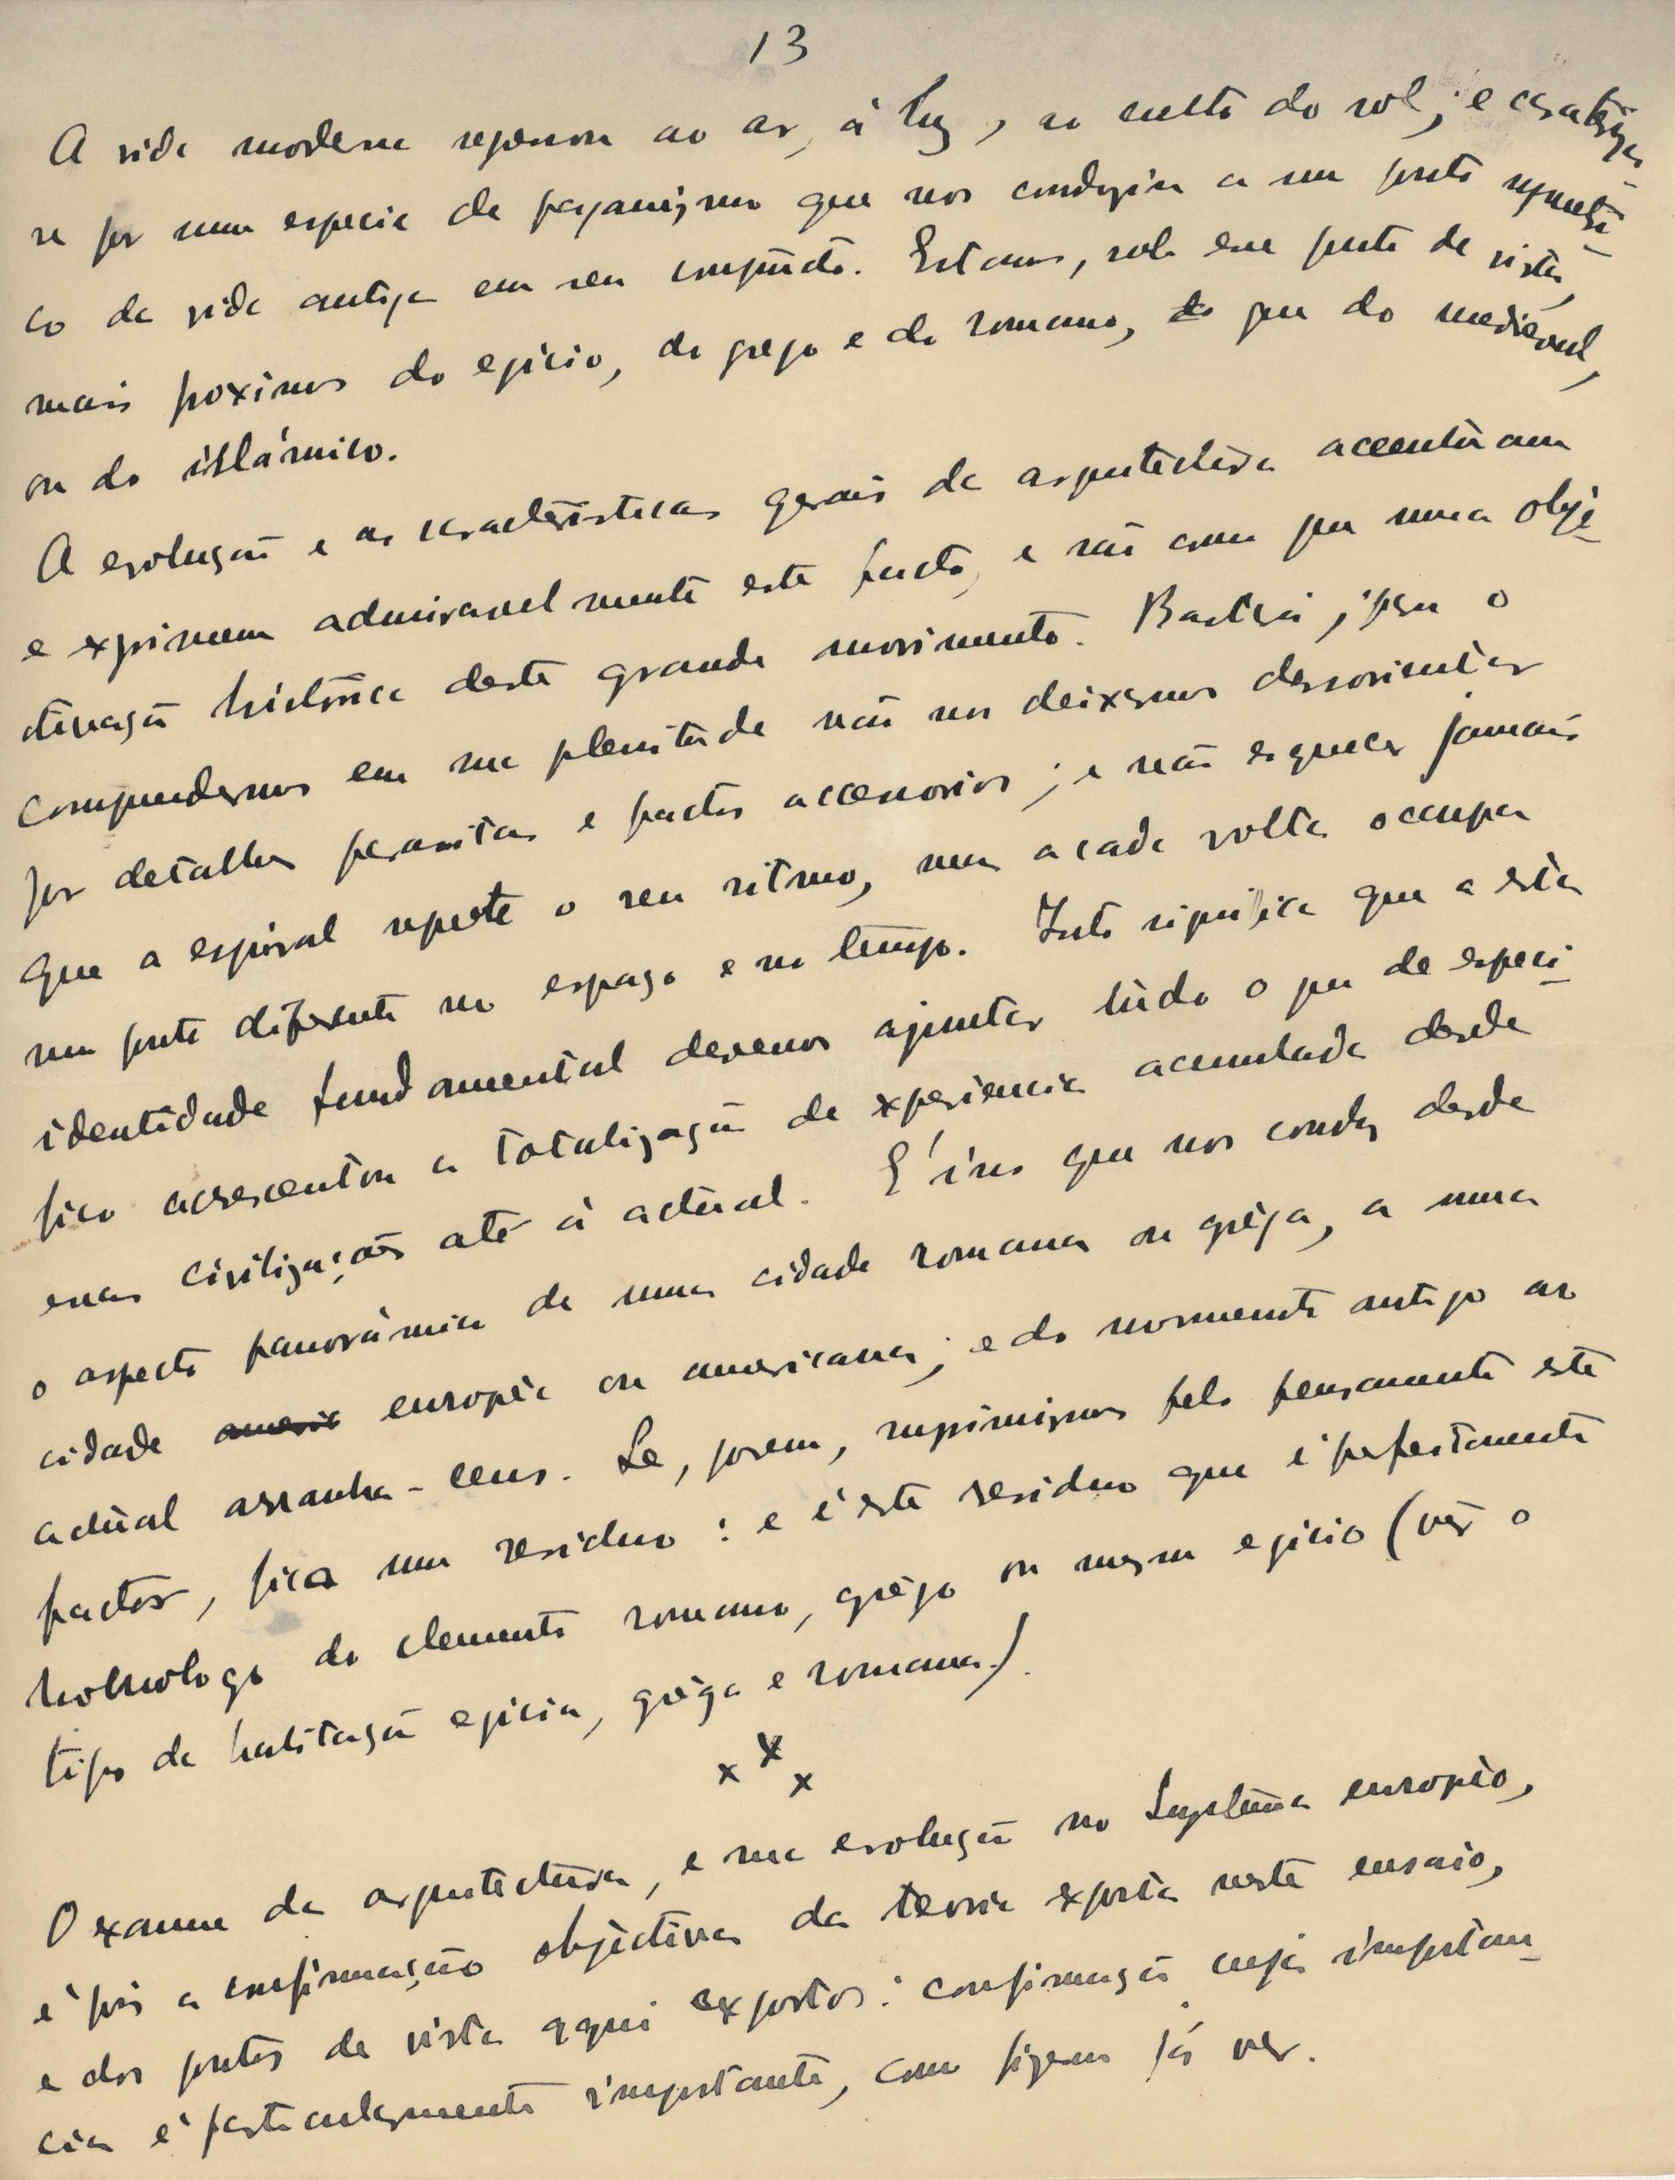 13
A vida moderna regressou ao ar, à luz, ao culto do sol; e caratériza
se por uma especie de paganismo que nos conduziu a um ponto
co da vida antiga em seu conjuncto. Estamos, sob esse ponto de vista,
mais proximos do egicio, do grego e do romano, do que do mediéval,
ou do islâmico.
A evolução e as caracteristicas gerais da arquitectura accentuam
e exprimem admiravelmente este facto, e são como que uma obje-
ctivação histórica deste grande movimento. Bastará, para o
comprendermos em sua plenitude não nos deixarmos desorientar
por detalhes parasitas e factos accessorios; e não esquecer jamais
que a espiral repete o seu ritmo, mas a cada volta occupa
um ponto diferente no espaço e no tempo. Isto significa que a esta
identidade fundamental devemos ajuntar tudo o que de especi-
fico acrescentou a totalização da experiencia acumulada desde
essas civilizações até à actual. É isso que nos conduz desde
o aspecto panorâmico de uma cidade romana ou grêga, a uma
cidade americ europêa ou americana; e do monumento antigo ao
actual arranha-ceus. Se, porem, suprimirmos pelo pensamento este
factor, fica um residuo: e é este residuo que é perfeitamente
homologo do elemento romano, grêgo ou mesmo egicio (vêr o
tipo da habitação egicia, grêga e romana).
x x x
O exame da arquitectura, e sua evolução no europêo,
é pois a confirmação objèctiva da teoria exposta neste ensaio,
e dos pontos de vista aqui expostos: confirmação cuja importan-
cia é particularmente importante, como fizemos já ver.